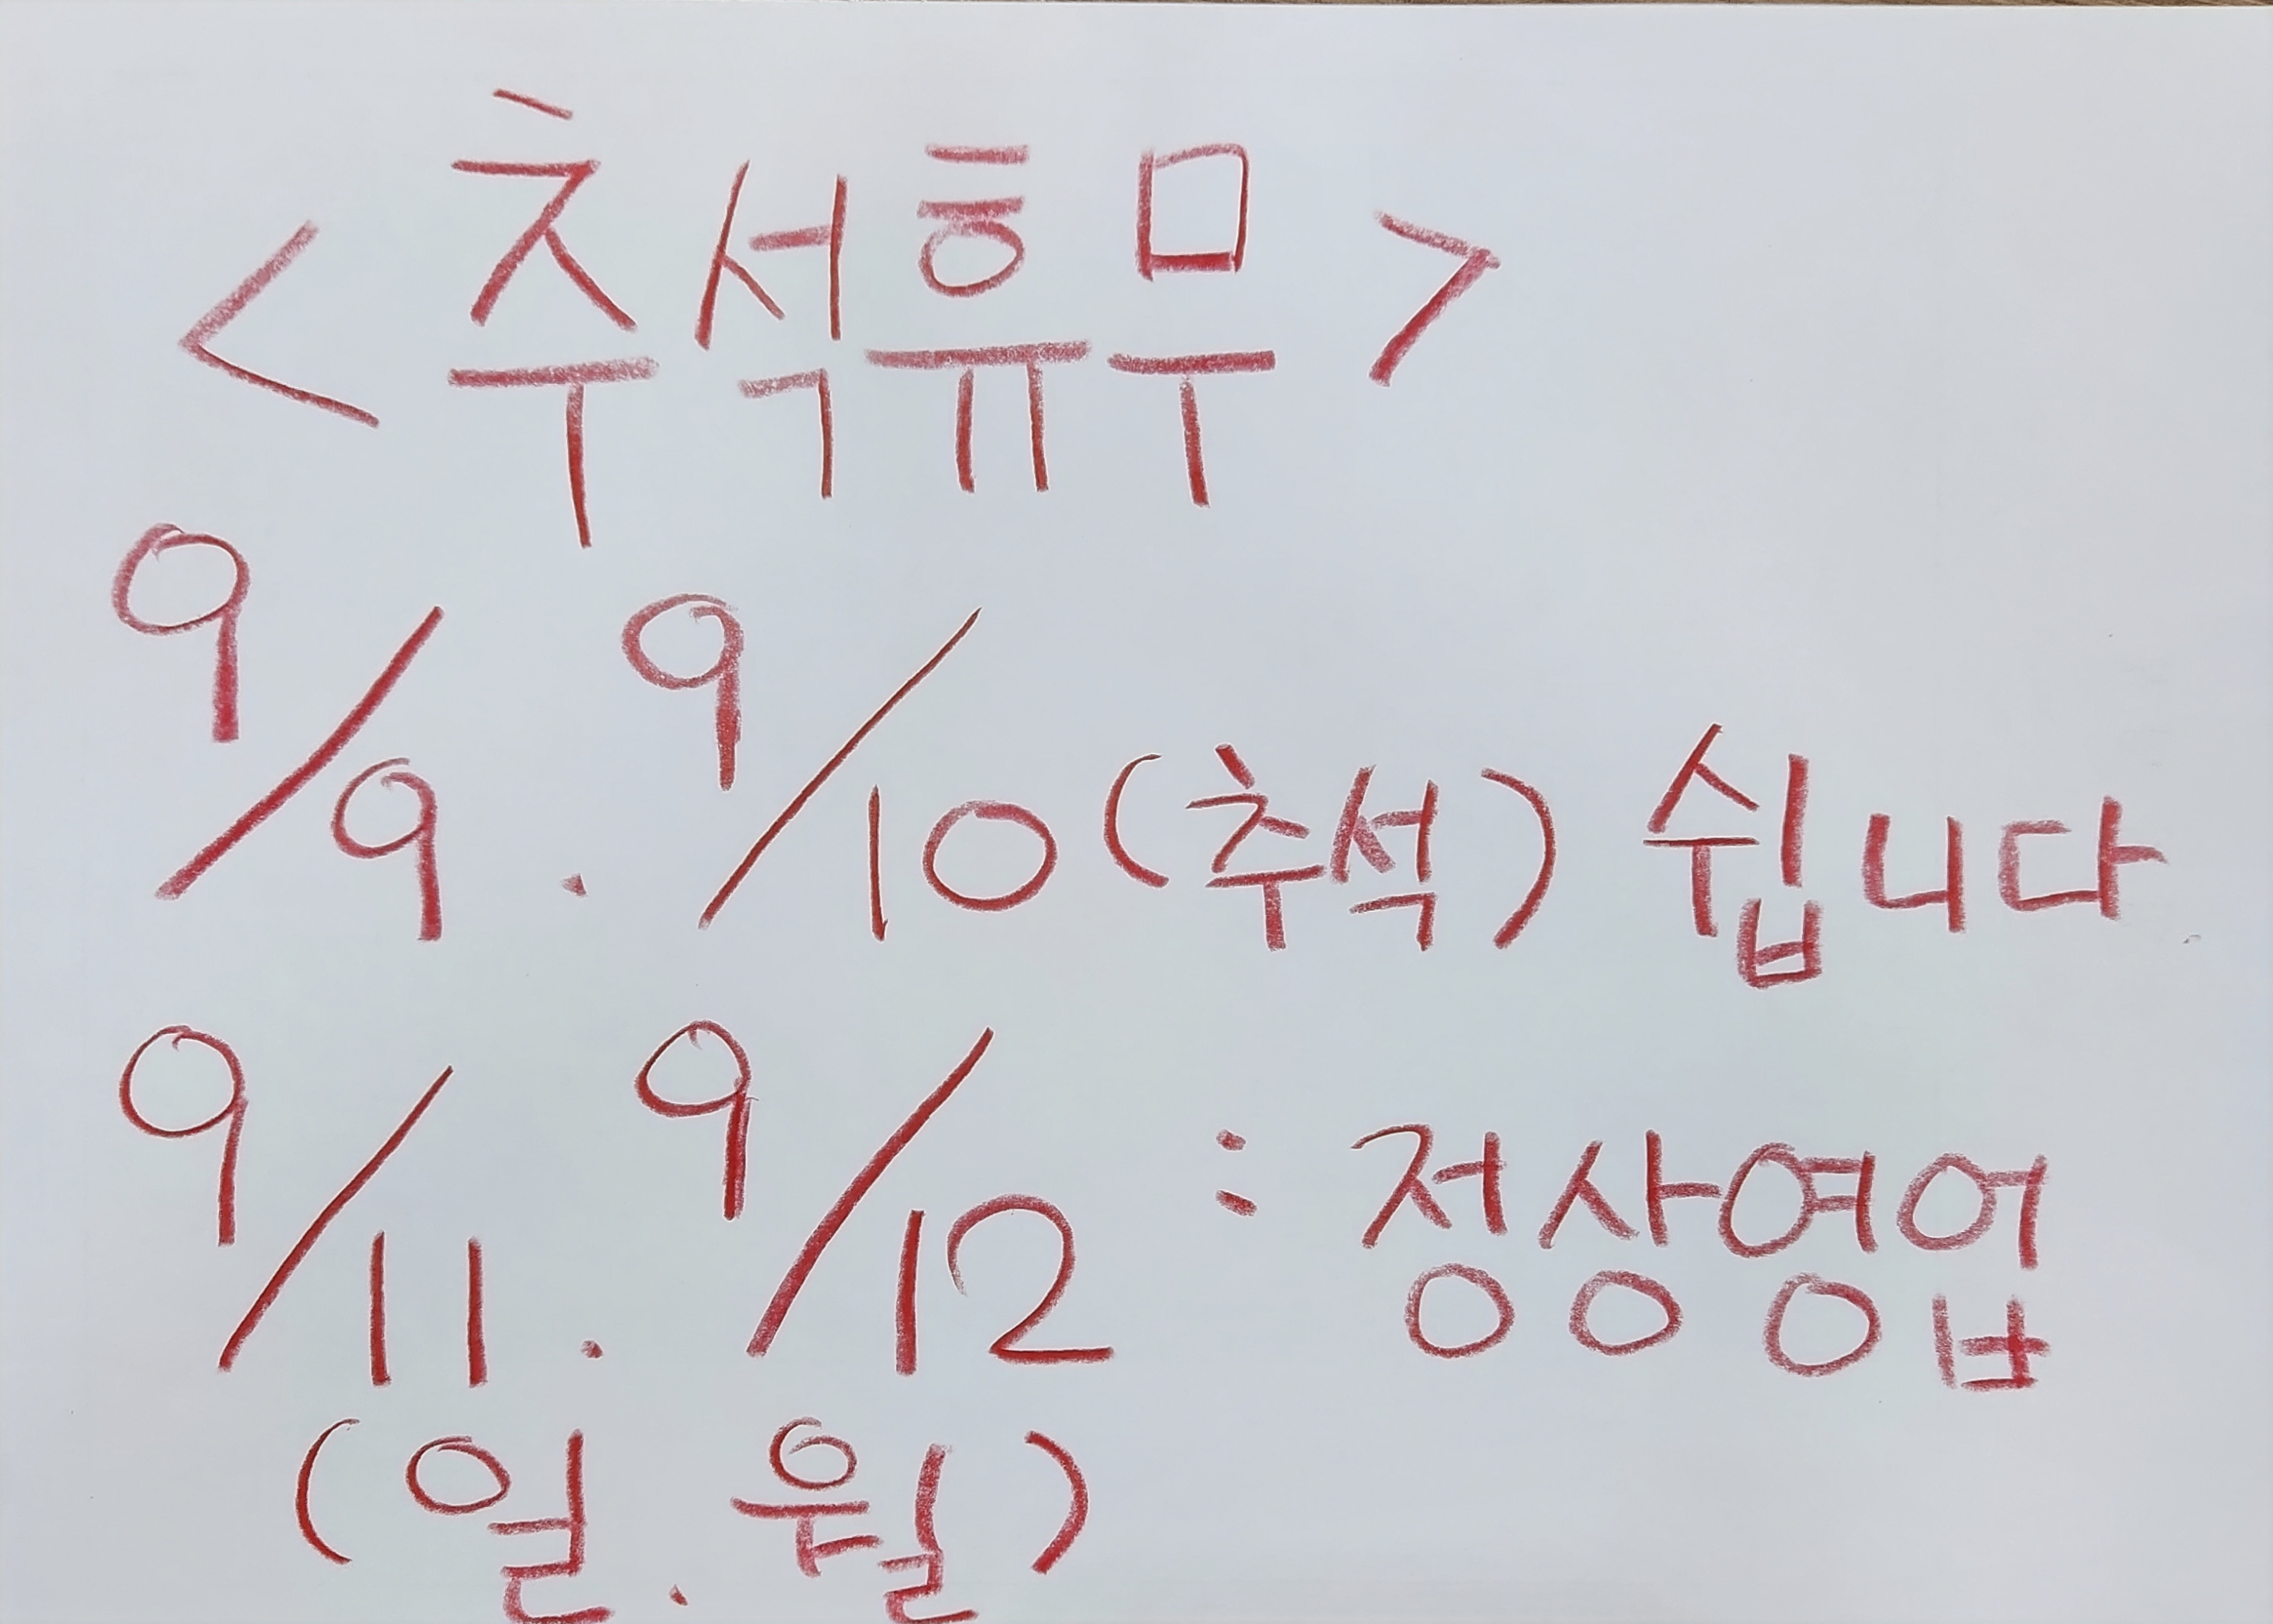 <추석휴무>
9/9. 9/10(추석) 쉽니다.
9/11. 9/12 : 정상영업
(일.월)